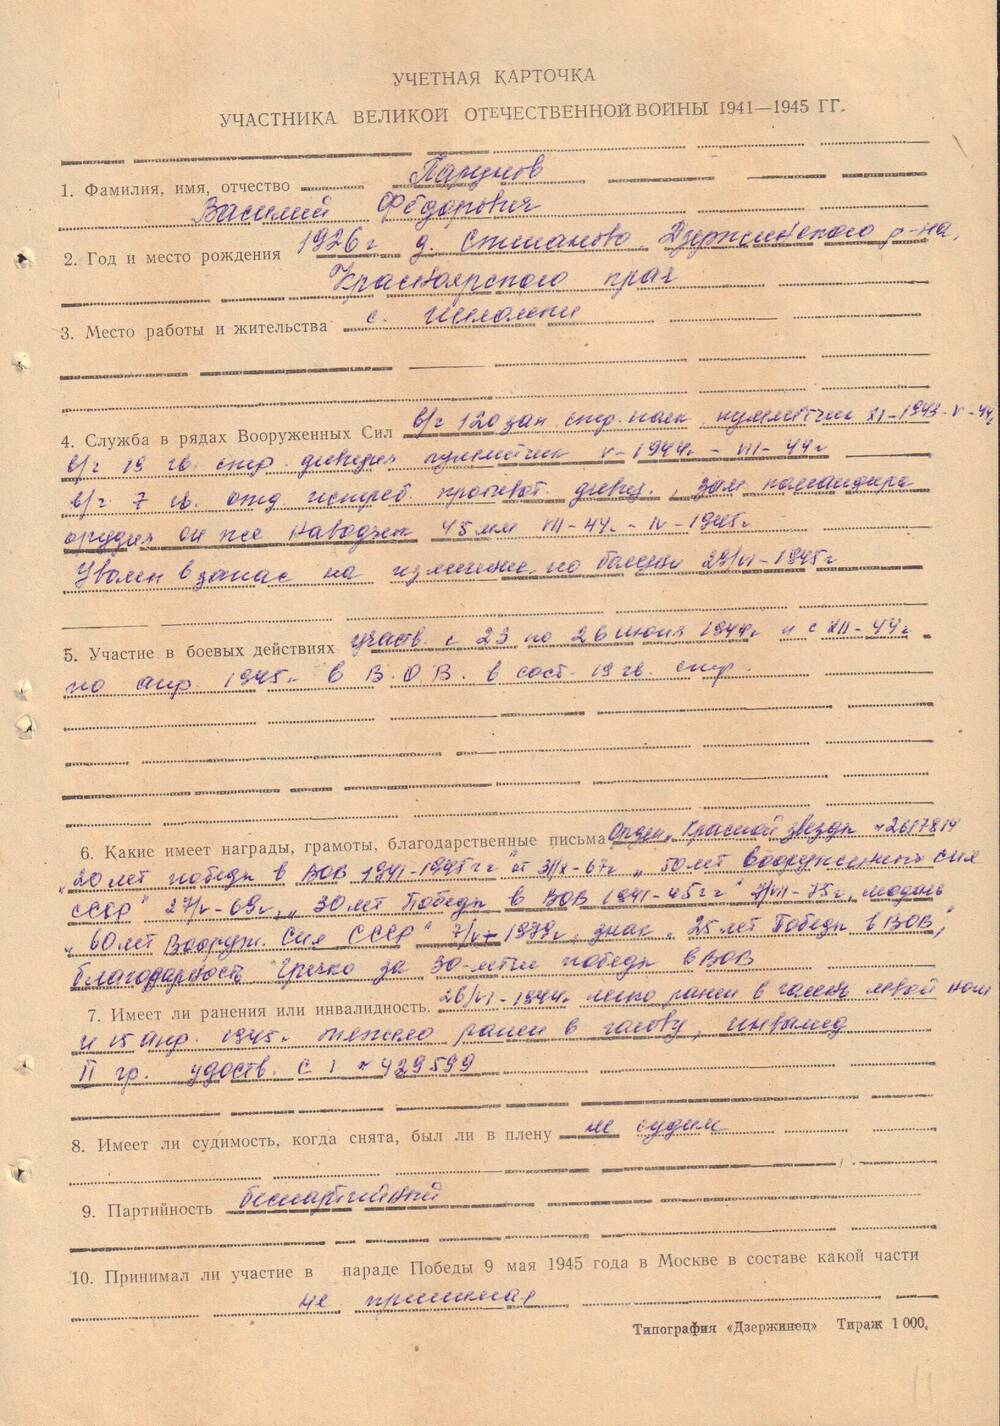 УЧЕТНАЯ КАРТОЧКА
УЧАСТНИКА ВЕЛИКОЙ ОТЕЧЕСТВЕННОЙ ВОЙНЫ 1941—1945 ГГ.
1. Фамилия, имя, отчество Парунов
Василий Фёдорович
2. Год и место рождения 1926 г д. Степаново Дзержинского р-на,
Красноярского края
3. Место работы и жительства с. Шеломки
4. Служба в рядах Вооруженных Сил в/ч 120 зап. стр. полк, пулеметчик XI-1943-V-44г
в/ч 19 гв. стр. дивизия пулеметчик V-1944г - VII-44г
в/ч 7 гв. отд. истреб. противот. дивиз., зам. командира
орудия он же наводчик 45 мм VII-44г - IV-1945г
Уволен в запас на излечение по болезни 29/VI-1945г
5. Участие в боевых действиях участв. с 23 по 26 июня 1944г и с XII-44г
по апр. 1945г в В.О.В. в сост. 19 гв. стр.
6. Какие имеет награды, грамоты, благодарственные письма Орден „Красной звезды №2617814
„20 лет победы в ВОВ 1941-1945гг" от 3/IX-67г „50 лет Вооруженных сил
СССР" 27/V-69г, „30 лет Победы в ВОВ 1941-45гг" 3/VII-75г, медаль
„60 лет Вооруж. Сил СССР" 7/V-1979г, знак „25 лет Победы в ВОВ",
благодарность Гречко за 30-летие победы в ВОВ
7. Имеет ли ранения или инвалидность. 26/VI-1944г легко ранен в голень левой ноги
и 15 апр. 1945г тяжело ранен в голову, инвалид
II гр. удоств. с I №429599
8. Имеет ли судимость, когда снята, был ли в плену не судим
9. Партийность беспартийный
10. Принимал ли участие в параде Победы 9 мая 1945 года в Москве в составе какой части
не принимал
Типография «Дзержинец» Тираж 1 000.
11